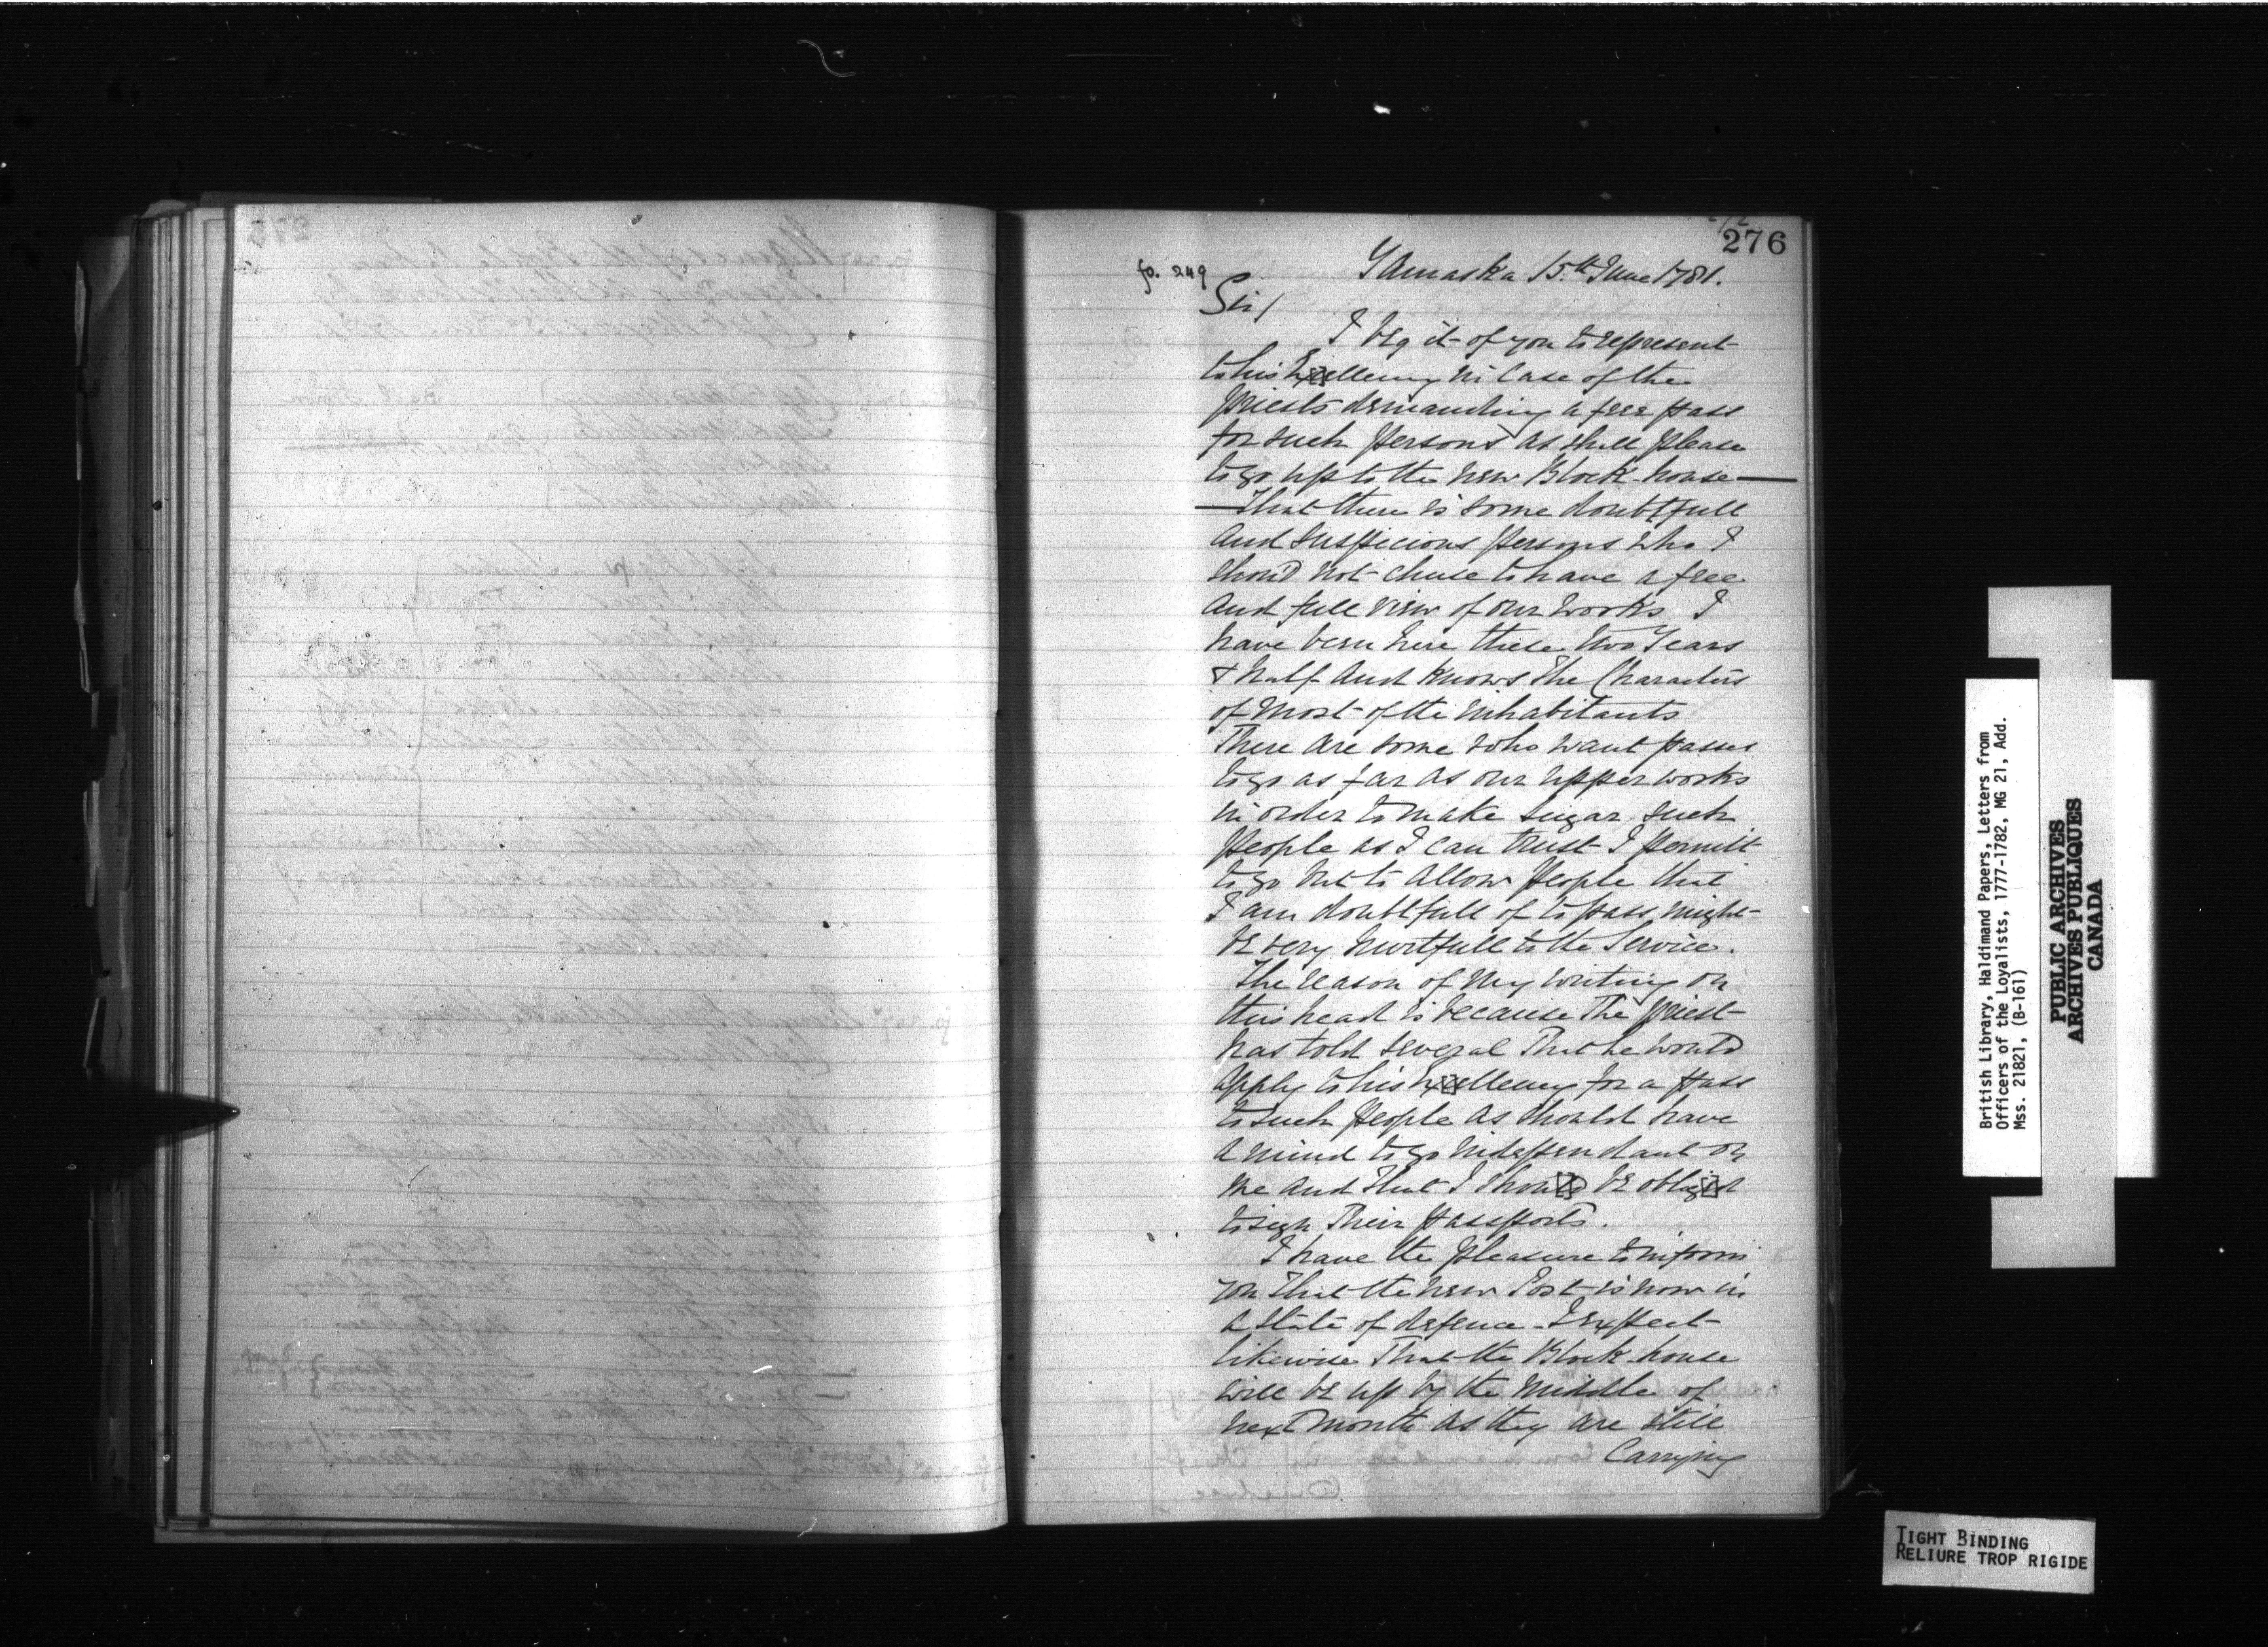 276
Yamaska 15th June 1781.
fo. 249
Sir/
I beg it of you to represent
to his Excellency in Case of the
priests demanding a free pass
for such persons as shall please
to go up to the new Block-house —
— That there is some doubtfull
and suspicious persons who I
should not chuse to have a free
and full view of our works I
have been here these two Years
& half and knows the Characters
of most of the inhabitants
There are some who want passes
to go as far as our upper works
in order to make sugar, such
people as I can trust I permitt
to go but to allow people that
I am doubtfull of to pass, might
be very hurtfull to the Service.
The reason of my writing on
this head is because The priest
has told several That he would
apply to his Excellency for a pass
to such people as should have
a mind to go independant on
me and that I should be obliged
to sign Their passports.
I have the pleasure to inform
you that the new Post is now in
a state of defence - I expect
likewise That the Block-house
will be up by the middle of
next month as they are still
Carrying
British Library, Haldimand Papers, Letters from
Officers of the Loyalists, 1777-1782, MG 21, Add.
Mss. 21821, (B-161)
PUBLIC ARCHIVES
ARCHIVES PUBLIQUES
CANADA
TIGHT BINDING
RELIURE TROP RIGIDE